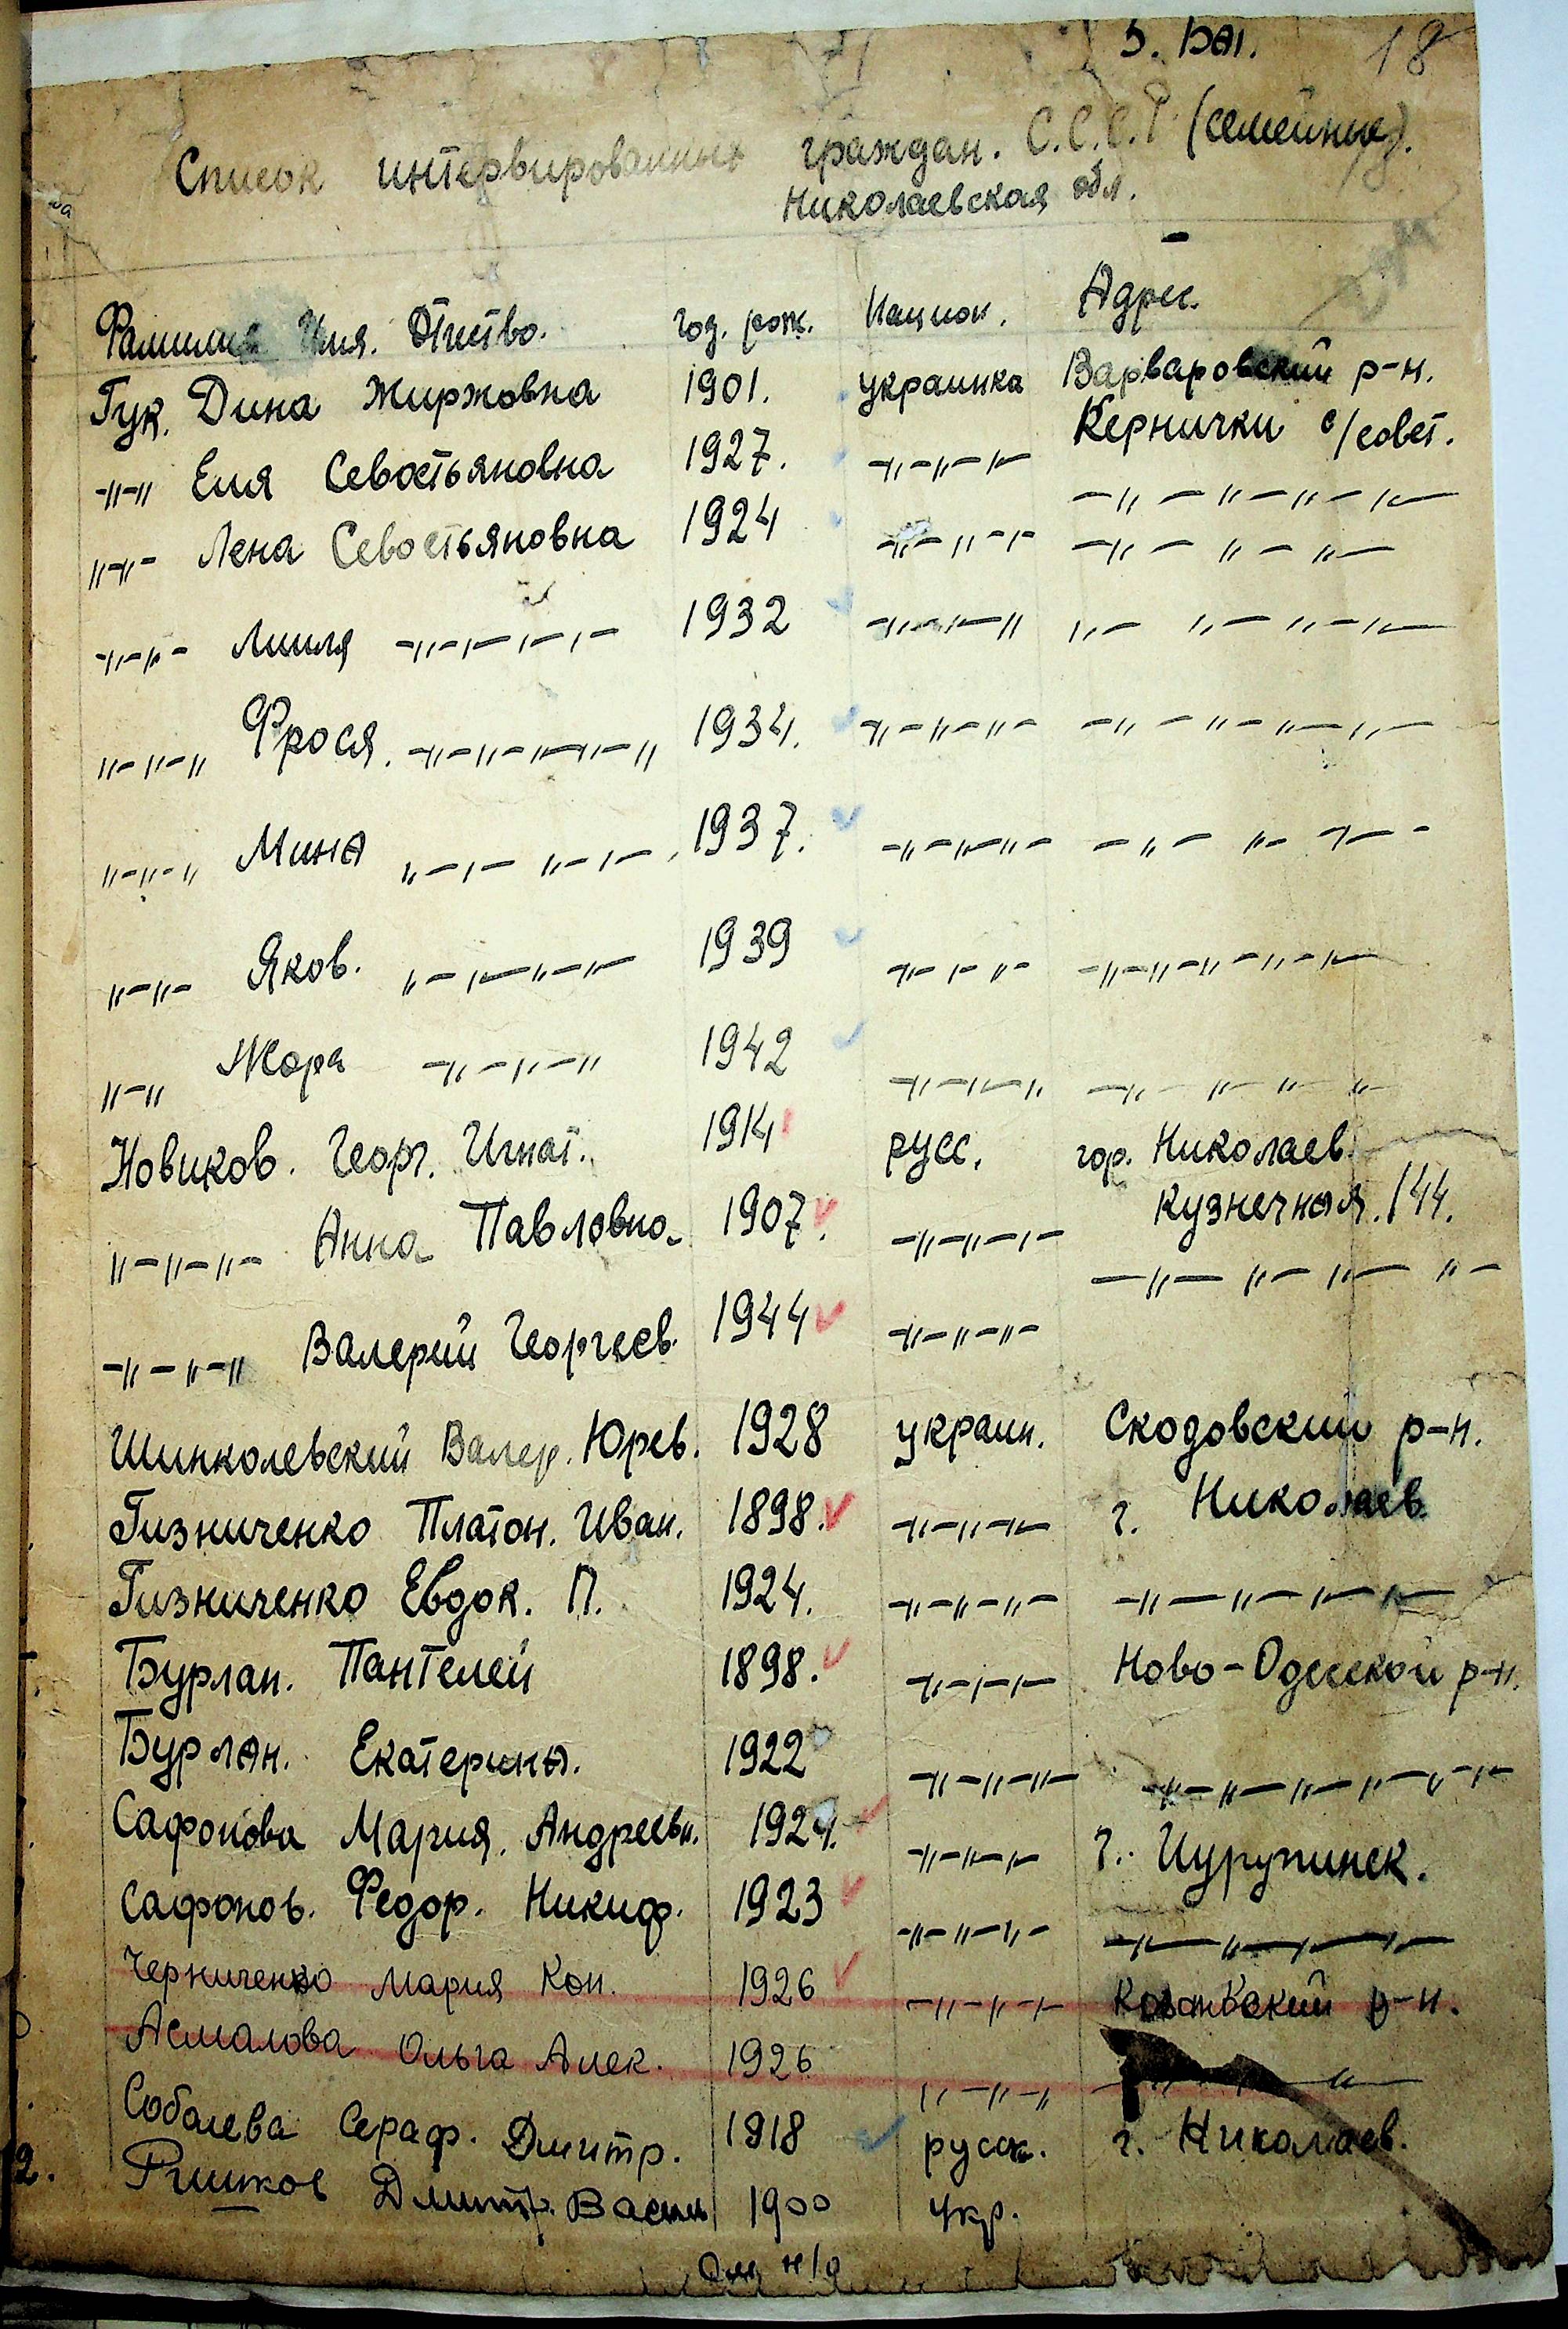 5. Бат. 18
Список интервированных граждан. С.С.С.Р (семейные).
Николаевская обл.
Фамилия Имя. Отчество. год. рож. Национ. Адрес.
Гук. Дина Жиржовна 1901. украинка Варваровский р-н.
Кернички с/совет.
-"-" Еля Севостьяновна 1927. -"-"-"- -"-"-"-"-
"-"- Лена Севостьяновна 1924 -"-"-"- -"-"-"-
-"-"- Лииля -"-"-"-"- 1932 -"-"-" "- "-"-"-
"-"-" Фрося. -"-"-"-"-" 1934. -"-"-"- -"-"-"-"-
"-"-" Мина "-"-"-"- 1937. -"-"-"- -"-"-"-
"-"- Яков. "-"-"-"- 1939 -"-"-"- -"-"-"-"-"-
"-" Жора -"-"-" 1942 -"-"-" -"-"-"-"
Новиков. Георг. Игнат. 1914 русс. гор. Николаев.
Кузнечная. 144.
"-"-"- Анна Павловна 1907. -"-"-"- -"-"-"-"-
-"-"-" Валерий Георгиев. 1944 -"-"-"-
Шинколевский Валер. Юрев. 1928 украин. Скодовский р-н.
Гизниченко Платон. Иван. 1898. -"-"-"- г. Николаев.
Гизниченко Евдок. П. 1924. -"-"-"- -"-"-"-"-
Бурлан. Пантелей 1898. -"-"-"- Ново-Одесской р-н.
Бурлан. Екатерина. 1922 -"-"-"- -"-"-"-"-"-
Сафонова Мария. Андреевн. -"-"-"- г. Цурупинск.
Сафонов. Федор. Никиф. 1923 -"-"-"- -"-"-"-"-
Черниченко Мария Кон. 1926 -"-"-"- р-н.
Асмалова Ольга Алек. 1926 "-"-" -"-"-"-
Соболева Сераф. Дмитр. 1918 русск. г. Николаев.
2. Дмитр. Васил 1900 укр.